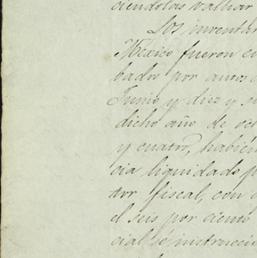 ciéndolas valuar
Los inventar
México fueron co
bados por autos d
Junio y diez y s
dicho año de oc
y cuatro, habién
cia liquidado p
tor fiscal, con
el seis por ciento
cial é instrucció